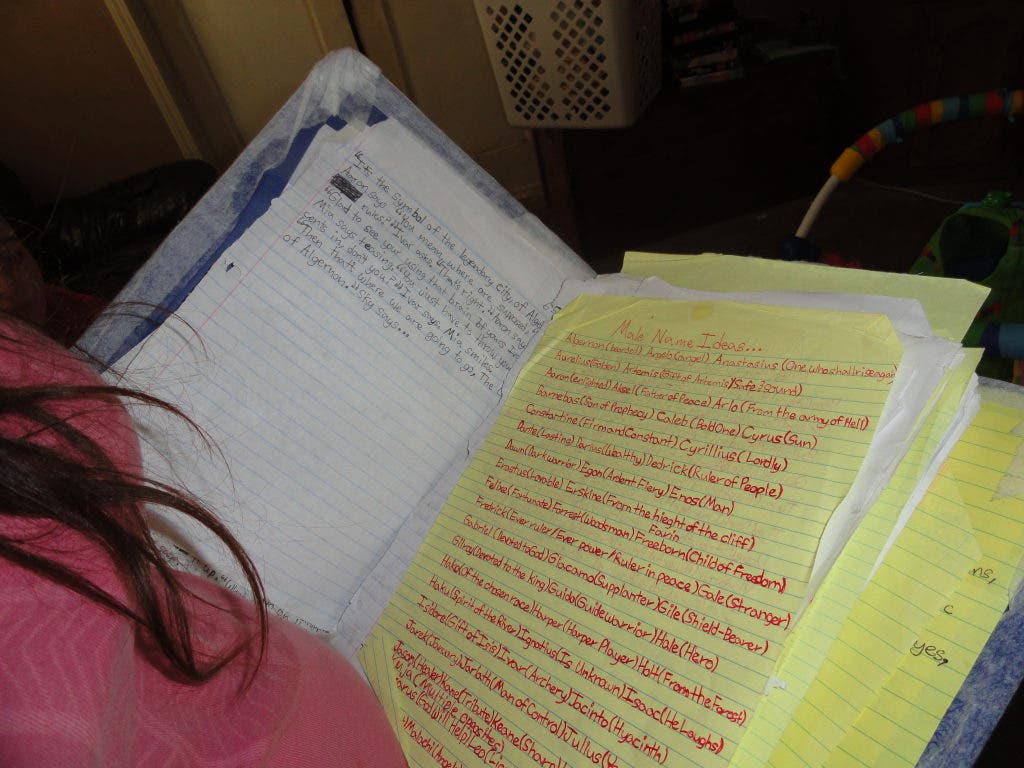 "It's the symbol of the legendary city of
Aaron says. "You mean, where are supposed
rules?" Ivar asks. "That's right." Aaron say
"Glad to see your using that brain of yours Iv
Mia says teasing. "You just have to throw your
cents in, don't you." Ivar says. Mia smiles.
"Then that's where we are going to go, The
of Algernon." Sky says...
Male Name Ideas...
Algernon (bearded) Angelo (angel) Anastasius (One who shall rise again)
Aurelius (Golden) Artemis (Gift of Artemis/Safe & Sound)
Aaron (enlighted) Aksel (Father of Peace) Arlo (From the army of Hell)
Barnebas (Son of Prophecy) Caleb (Bold One) Cyrus (Sun)
Constantine (Firm and Constant) Cyrillius (Lordly)
Dante (Lasting) Darius (Wealthy) Dedrick (Ruler of People)
Dawn (Dark warrior) Egon (Ardent Fiery) Enos (Man)
Erastus (Lovable) Erskine (From the hieght of the cliff)
Felixe (Fortunate) Forrest (Woodsman) Freeborn (Child of Freedom)
Farin
Fredrick (Ever ruler/Ever power/Ruler in peace) Gale (Stranger)
Gabriel (Devoted to God) Giacamo (Supplanter) Gile (Shield-Bearer)
Gilroy (Devoted to the King) Guido (Guide warrior) Hale (Hero)
(Of the chosen race) Harper (Harper Player) Holt (From the Forest)
Haku (Spirit of the River) Ignatius (Is Unknown) Isaac (He Laughs)
Isidore (Gift of Isis) Ivar (Archery) Jacinto (Hyacinth)
Jarek (January) Jareth (Man of Control) Julius
Jason (Healer) Kane (Tribute) Keane (Sharp)
(Multiple opposites)
(God will help) Leo
Malachi
ns,
c
yes,